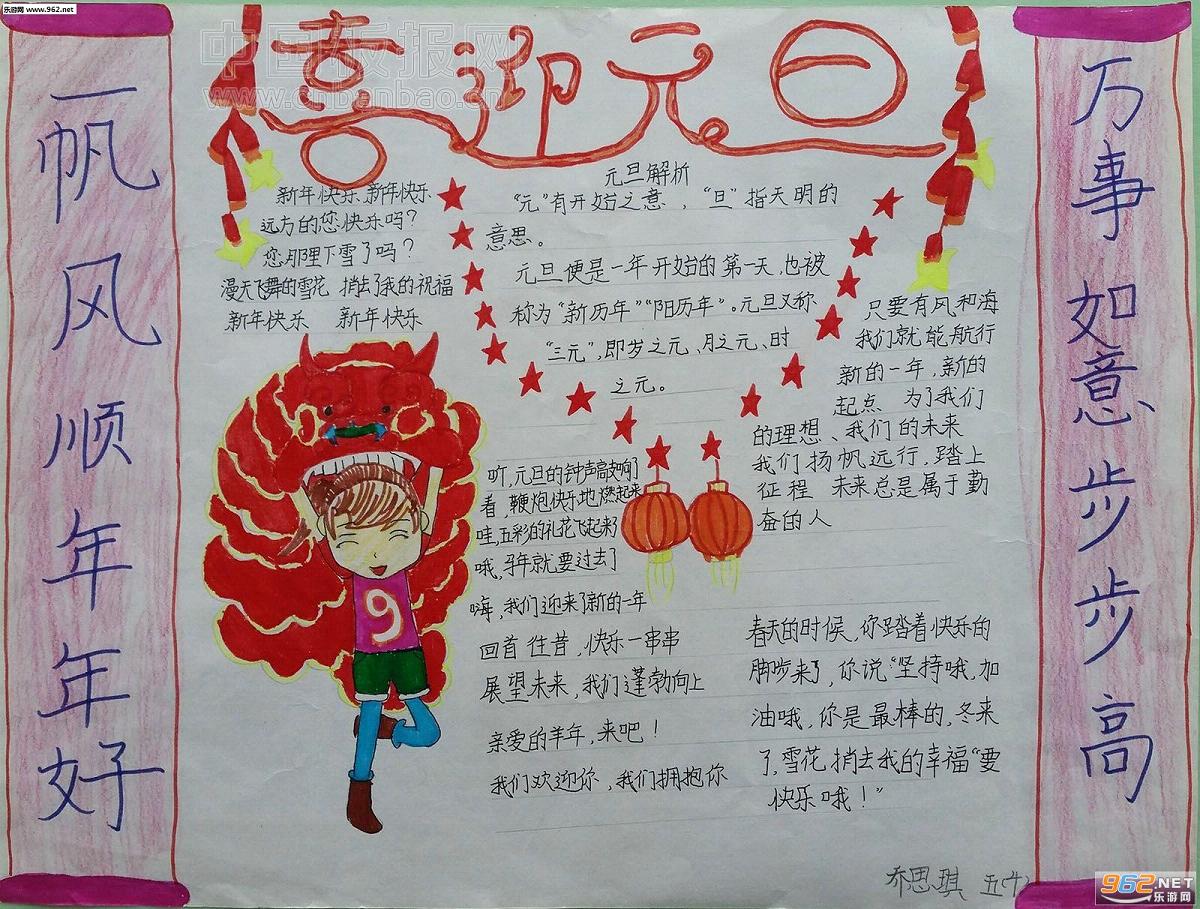 乐游网 www.962.net
中国板报网
www.cnbanbao.cn
喜迎元旦
一帆风顺年年好
万事如意步步高
新年快乐、新年快乐
远方的您快乐吗？
您那里下雪了吗？
漫天飞舞的雪花 捎去了我的祝福
新年快乐 新年快乐
元旦解析
“元”有开始之意，“旦”指天明的
意思。
元旦便是一年开始的第一天，也被
称为“新历年”“阳历年”。元旦又称
“三元”，即岁之元、月之元、时
之元。
只要有风和海
我们就能航行
新的一年，新的
起点 为了我们
的理想、我们的未来
我们扬帆远行，踏上
征程 未来总是属于勤
奋的人
听，元旦的钟声敲响了
看，鞭炮快乐地燃起来
哇，五彩的礼花飞起来了
哦，马年就要过去了
嗨，我们迎来了新的一年
回首往昔，快乐一串串
展望未来，我们蓬勃向上
亲爱的羊年，来吧！
我们欢迎你，我们拥抱你
9
春天的时候，你踏着快乐的
脚步来了，你说“坚持哦，加
油哦，你是最棒的，冬来
了，雪花捎去我的幸福“要
快乐哦！”
乔思琪 五
962.NET
乐游网